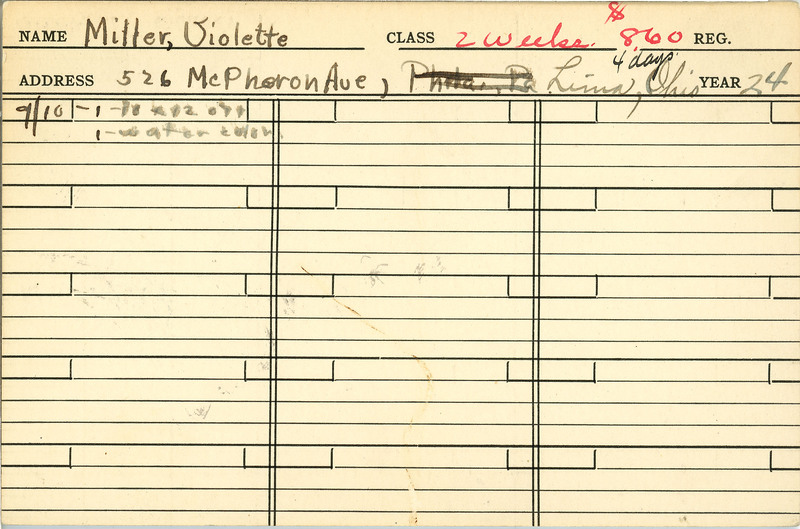 NAME Miller, Violette CLASS 2 weeks. $8.60 REG.
4 days.
ADDRESS 526 McPheron Ave, Phila., Pa Lima, Ohio YEAR 24
9/10 - 1 - 10 x 12
1 - water color.